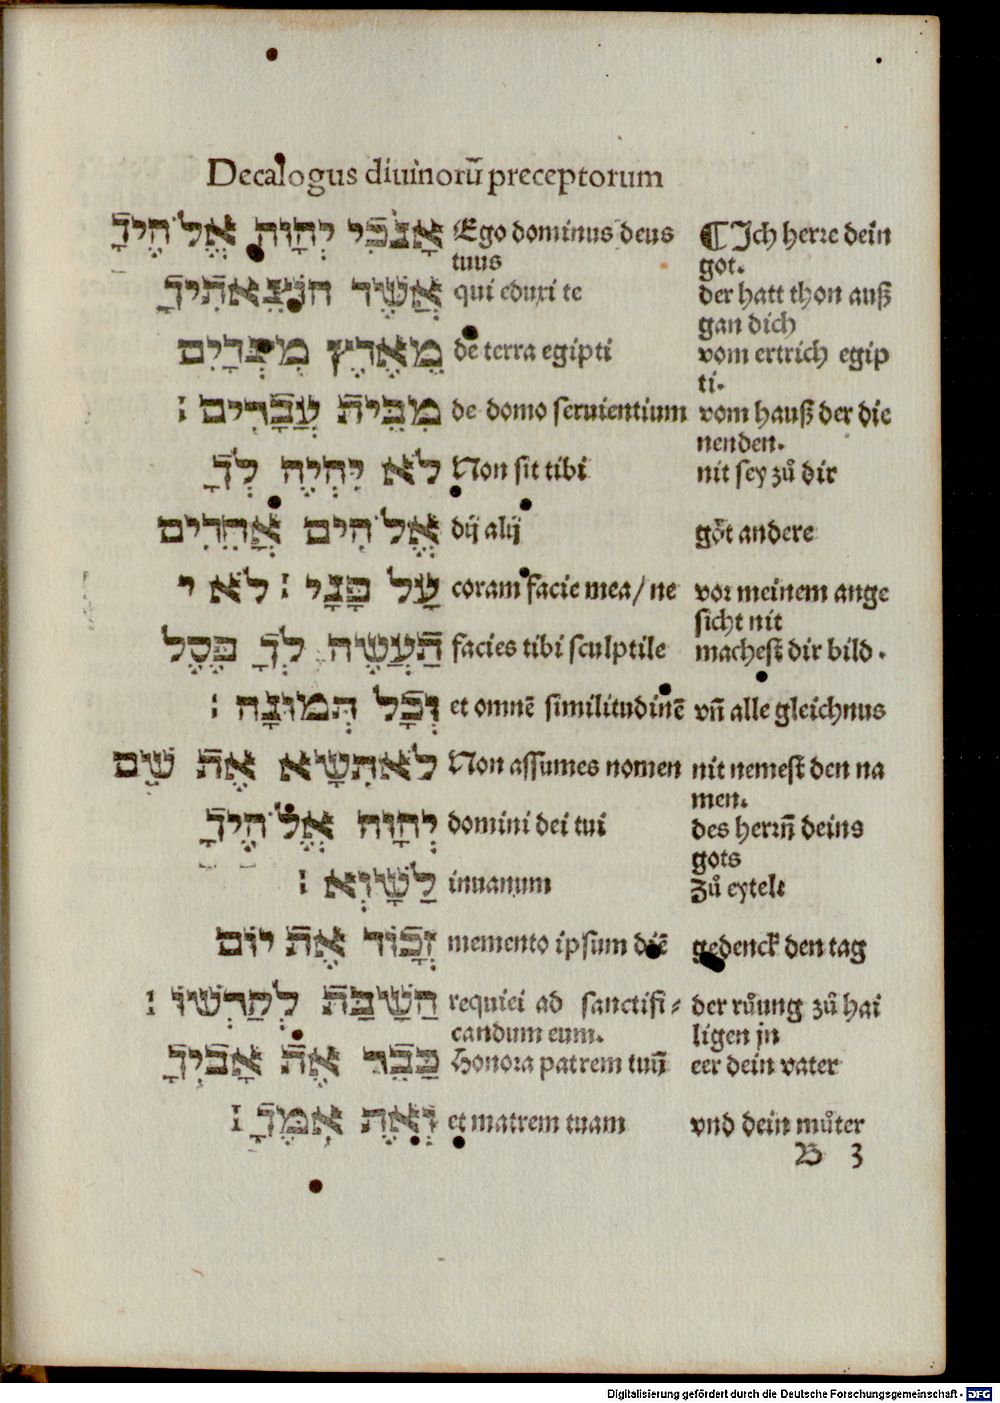 Decalogus diuinorū preceptorum
אָנֹכִי יְהֹוָה אֱלֹהֶיךָ Ego dominus deus ¶ Ich herre dein
tuus got.
אֲשֶׁר הוֹצֵאתִיךָ qui eduxi te der hatt thon auß
gan dich
מֵאֶרֶץ מִצְרָיִם de terra egipti vom ertrich egip
ti.
מִבֵּית עֲבָדִים : de domo seruientium vom hauß der die
nenden.
לֹא יִהְיֶה לְךָ Non sit tibi nit sey zů dir
אֱלֹהִים אֲחֵרִים dij alij göt andere
עַל פָּנָי : לֹא coram facie mea / ne vor meinem ange
sicht nit
תַּעֲשֶׂה לְךָ פֶסֶל facies tibi sculptile machest dir bild .
וְכָל תְּמוּנָה : et omnē similitudinē vn̄ alle gleichnus
לֹא תִשָּׂא אֶת שֵׁם Non assumes nomen nit nemest den na
men.
יְהֹוָה אֱלֹהֶיךָ domini dei tui des herrn̄ deins
gots
לַשָּׁוְא : inuanum Zů eytelt
זָכוֹר אֶת יוֹם memento ipsum diē gedenck den tag
הַשַּׁבָּת לְקַדְּשׁוֹ : requiei ad sanctifi⸗ der růung zů hai
candum eum. ligen jn
כַּבֵּד אֶת אָבִיךָ Honora patrem tuū eer dein vater
וְאֶת אִמֶּךָ : et matrem tuam vnd dein můter
B 3
Digitalisierung gefördert durch die Deutsche Forschungsgemeinschaft - DFG